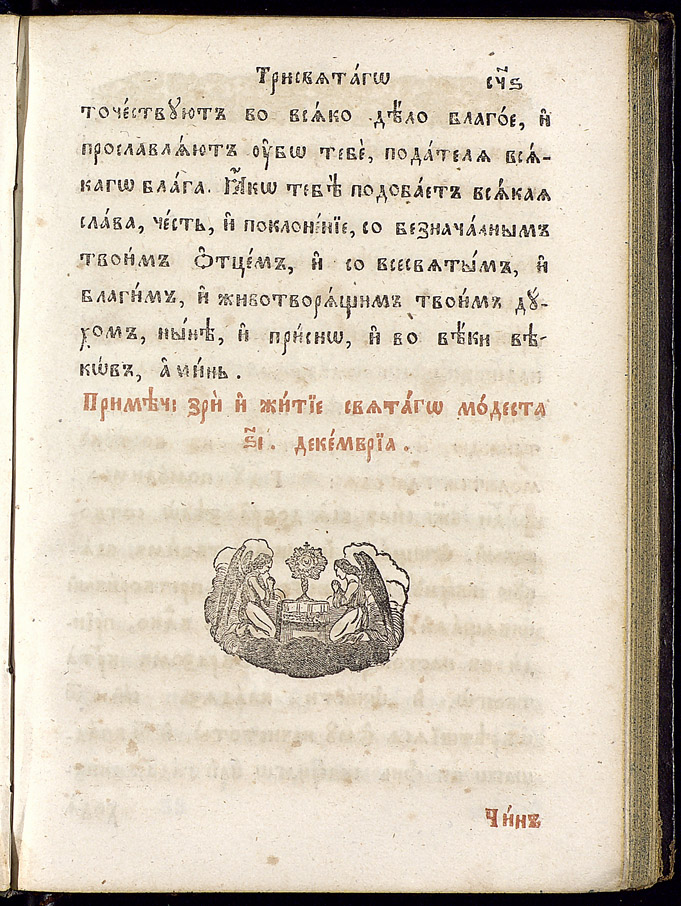 Трисвѧта́гѡ сч҃ѕ
точе́ствꙋютъ во всѧ́ко дѣ́ло благо́е, и҆
прославлѧ́ютъ ᲂу҆́бѡ тебѐ, пода́телѧ всѧ́-
кагѡ бла́га. Ꙗ҆́кѡ тебѣ̀ подоба́етъ всѧ́каѧ
сла́ва, че́сть, и҆ поклоне́нїе, со безнача́лнымъ
твои́мъ Ѻ҆тце́мъ, и҆ со всесвѧты́мъ, и҆
благи́мъ, и҆ животворѧ́щимъ твои́мъ дꙋ́-
хомъ, ны́нѣ, и҆ при́снѡ, и҆ во вѣ́ки вѣ-
кѡ́въ, а҆ми́нь.
Примѣ́чі зрѝ и҆ житїе свѧта́гѡ мо́деста
ѕ҃і. деке́мврїа.
Чи́нъ